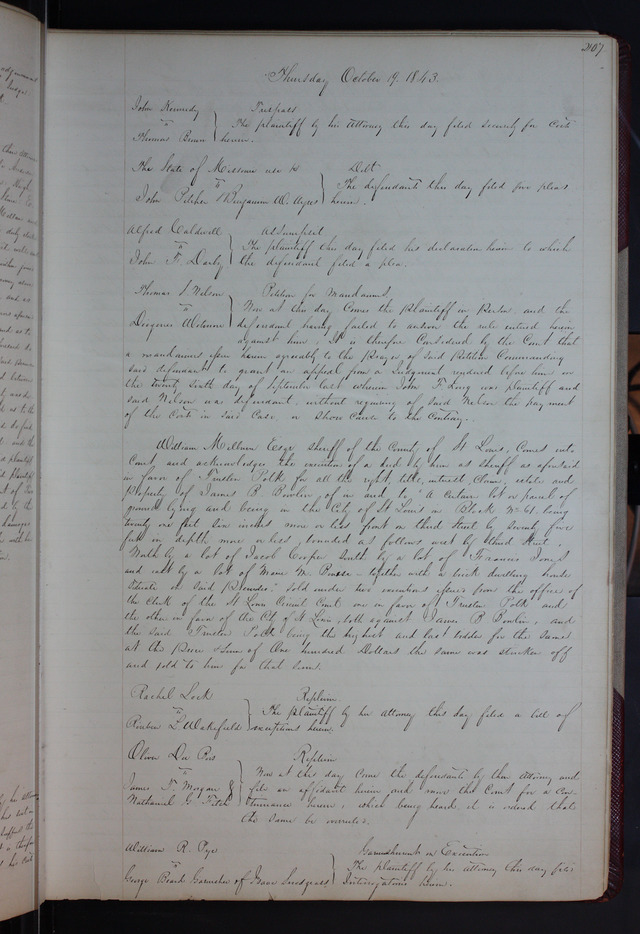 Thursday October 19. 1843.
John Kennedy Trespass
vs The plaintiff by his Attorney this day filed security for Costs
Thomas herein.
The State of Missouri use &c Debt
vs The defendants this day filed five pleas
John Pitcher & Benjamin W. Ayres herein.
Alfred Caldwell Assumpsit
vs The plaintiff this day filed his declaration herein to which
John F. Darby the defendant filed a plea.
Thomas S. Nelson Petition for Mandamus.
vs Now at this day Comes the Plaintiff in Person and the
Diogenes Wetmore defendant having failed to answer the rule entered herein
against him, It is therefore Considered by the Court that
a mandamus issue herein agreeably to the Prayer of said Petition Commanding
said defendant to grant an appeal from a Judgment rendered before him on
the twenty sixth day of September last wherein John F. King was plaintiff and
said Nelson was defendant, without requiring of said Nelson the payment
of the Costs in said Case, or Show Cause to the Contrary.
William Milburn Esqr Sheriff of the County of St Louis, Comes into
Court and acknowledges the execution of a deed by him as Sheriff as aforesaid
in favor of Trusten Polk for all the right, title, interest, Claim, estate and
property of James B Bowlin of in and to "A Certain lot or parcel of
ground lying and being in the City of St Louis in Block No 61, being
twenty one feet six inches more or less front on third Street by Seventy five
feet in depth more or less, bounded as follows, west by third Street,
North by a lot of Jacob Cooper South by a lot of Francis Jones
and east by a lot of Marie M. together with a brick dwelling house
situate on said Premises: sold under two executions issued from the office of
the Clerk of the St Louis Circuit Court one in favor of Trusten Polk and
the other in favor of the City of St Louis, both against James B Bowlin, and
the said Trusten Polk being the highest and last bidder for the Same
at the Price & Sum of One hundred Dollars the same was stricken off
and sold to him for that Sum.
Rachel Lock Replevin
vs The plaintiff by her attorney this day filed a bill of
Reuben T. Wakefield exceptions herein.
Oliver Replevin
vs Now at this day Come the defendants by their Attorney and
James F. Morgan & file an affidavit herein and move the Court for a Con-
Nathaniel G. Fitch tinuance herein, which being heard it is ordered that
the same be overruled.
William R. Pye Garnishment on Execution
vs The plaintiff by his Attorney this day files
George Beard Garnishee of Isaac Interrogatories herein.